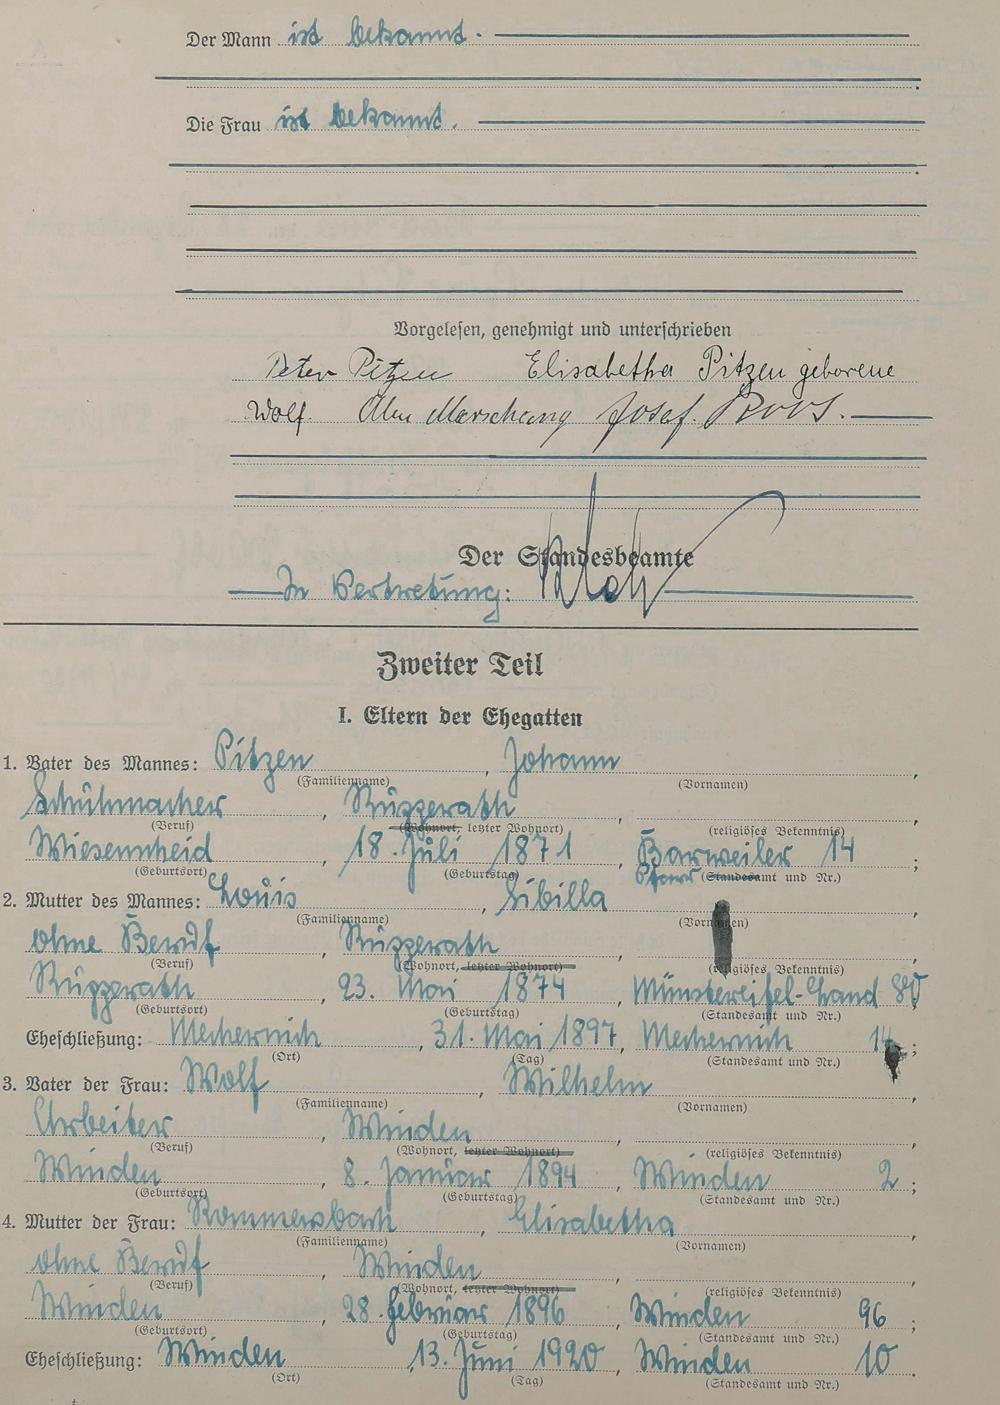 Der Mann ist bekannt.
Die Frau ist bekannt.
Vorgelesen, genehmigt und unterschrieben
Peter Pitzen Elisabetha Pitzen geborene
Wolf. Josef Roos.
Der Standesbeamte
In Vertretung:
Zweiter Teil
I. Eltern der Ehegatten
1. Vater des Mannes: Pitzen, Johann,
(Familienname) (Vornamen)
Schuhmacher, Rupperath, ,
(Beruf) (Wohnort, letzter Wohnort) (religiöses Bekenntnis)
Wiesenscheid, 18. Juli 1871, Barweiler 14;
(Geburtsort) (Geburtstag) Pfarr (Standesamt und Nr.)
2. Mutter des Mannes: Louis, Sibilla,
(Familienname) (Vornamen)
ohne Beruf, Rupperath, ,
(Beruf) (Wohnort, letzter Wohnort) (religiöses Bekenntnis)
Rupperath, 23. Mai 1874, Münstereifel-Land
(Geburtsort) (Geburtstag) (Standesamt und Nr.)
Eheschließung: Mechernich, 31. Mai 1897, Mechernich 14;
(Ort) (Tag) (Standesamt und Nr.)
3. Vater der Frau: Wolf, Wilhelm,
(Familienname) (Vornamen)
Arbeiter, Winden, ,
(Beruf) (Wohnort, letzter Wohnort) (religiöses Bekenntnis)
Winden, 8. Januar 1894, Winden 2;
(Geburtsort) (Geburtstag) (Standesamt und Nr.)
4. Mutter der Frau: Rommersbach, Elisabetha,
(Familienname) (Vornamen)
ohne Beruf, Winden, ,
(Beruf) (Wohnort, letzter Wohnort) (religiöses Bekenntnis)
Winden, 28. Februar 1896, Winden 96;
(Geburtsort) (Geburtstag) (Standesamt und Nr.)
Eheschließung: Winden, 13. Juni 1920, Winden 10.
(Ort) (Tag) (Standesamt und Nr.)